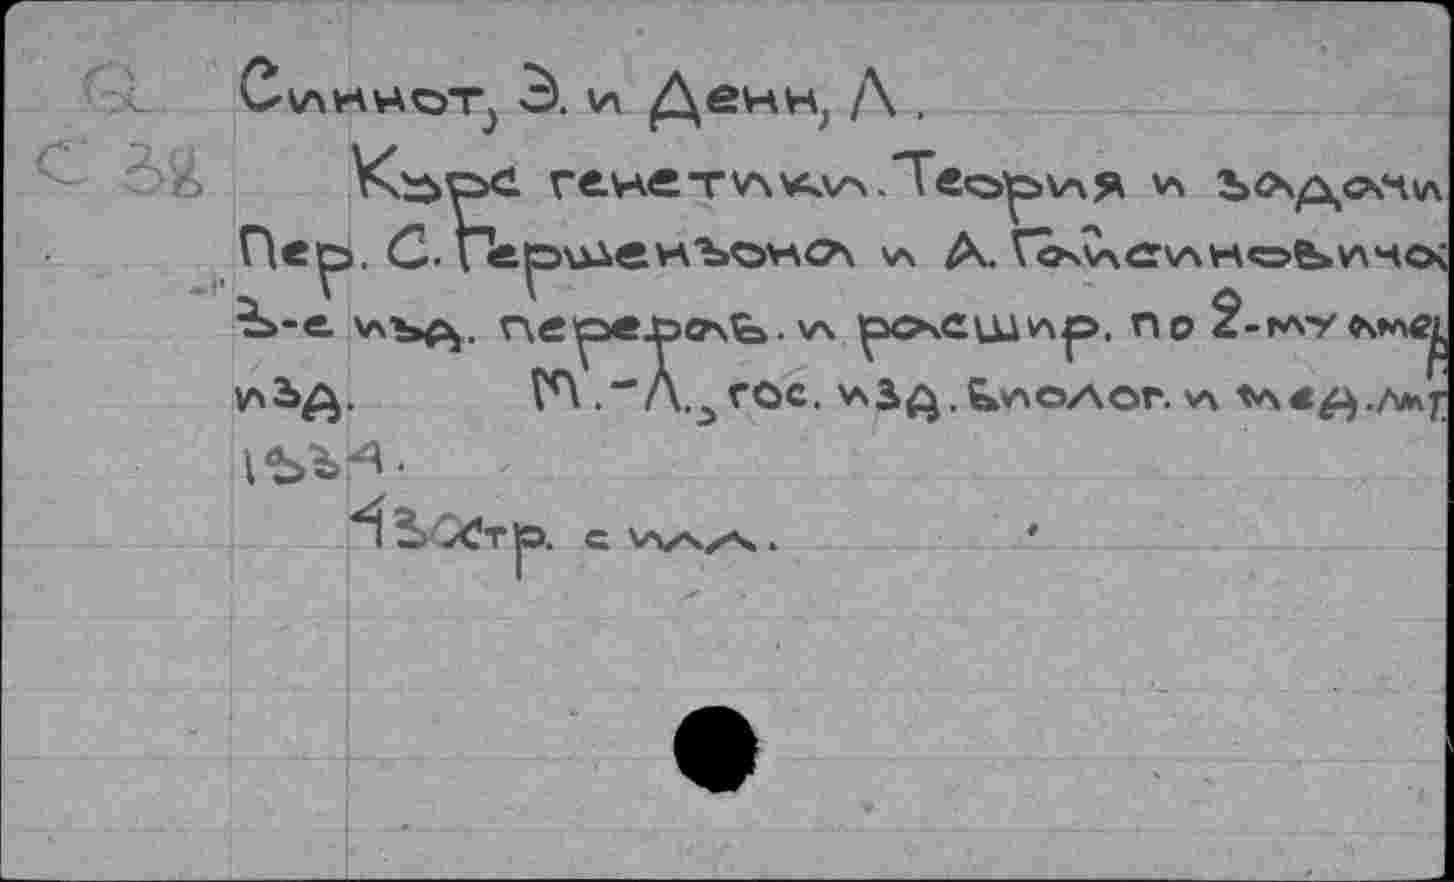 Синнот, Э. и Денн, Л.
С 38 Курс генетики. Теория и задачи
Пер. С. Гершензона и А. Гайсиновича
3-е изд. перераб. и расшир. по 2-му амер.
изд. М.-Л., гос. изд. биолог. и мед. лит.
1934.
43 Стр. с илл.